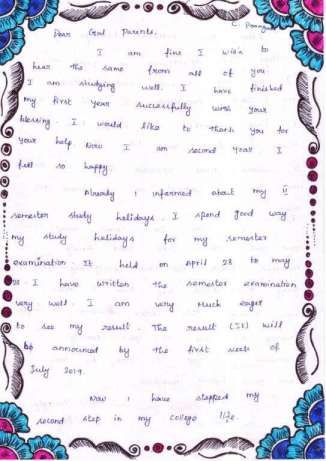 C. Poongo
Dear God Parents,
I am fine I wish to
hear the same from all of you.
I am studying well. I have finished
my first year successfully with your
blessing. I would like to thank you for
your help. Now I am second year I
fell so happy.
Already i informed about my II
semester study holidays. I spend good way
my study holidays for my semester
examination. It held on April 23 to may
I have written the semester examination
very well. I am very much eager
to see my result. The result (II) will
be announced by the first week of
July 2019.
Now i have stepped my
second step in my college life.